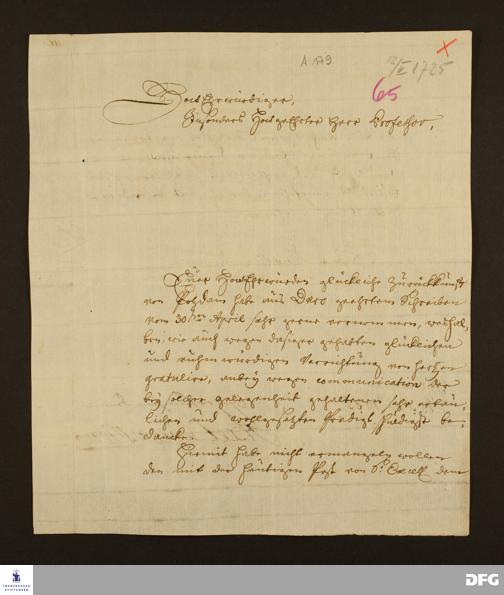 A 179
1725
65
HochEhrwürdiger,
Besonders Hochgeehrter Herr Professor,
Euer HochEhrwürden glückliche Zurückkunft
von Potzdam habe aus Dero geehrtem Schreiben
vom 30ten April sehr gerne vernommen, weshal-
ben, wie auch wegen dasiger gehabten glücklichen
und ruhmwürdigen Verrichtung von hertzen
gratulire, anbey wegen communication der
bey solcher gelegenheit gehaltenen sehr erbau-
lichen und wohlgesetzten Predigt, schuldigst be-
dancke.
Hiermit habe nicht ermangeln wollen
den mit der heutigen Post von Sr. Excell. dem
FRANCKESCHE
STIFTUNGEN
DFG